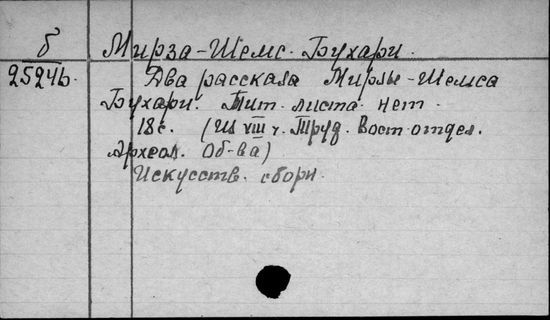 б
Мирза-Шемс. Бухари.
25246.
Два рассказа Мирзы-Шемса
Бухари. Тит. листа нет.
18 с. (Из VIII ч. Труд. Вост. отдел.
Археол. Об-ва)
Искусств. сборн.